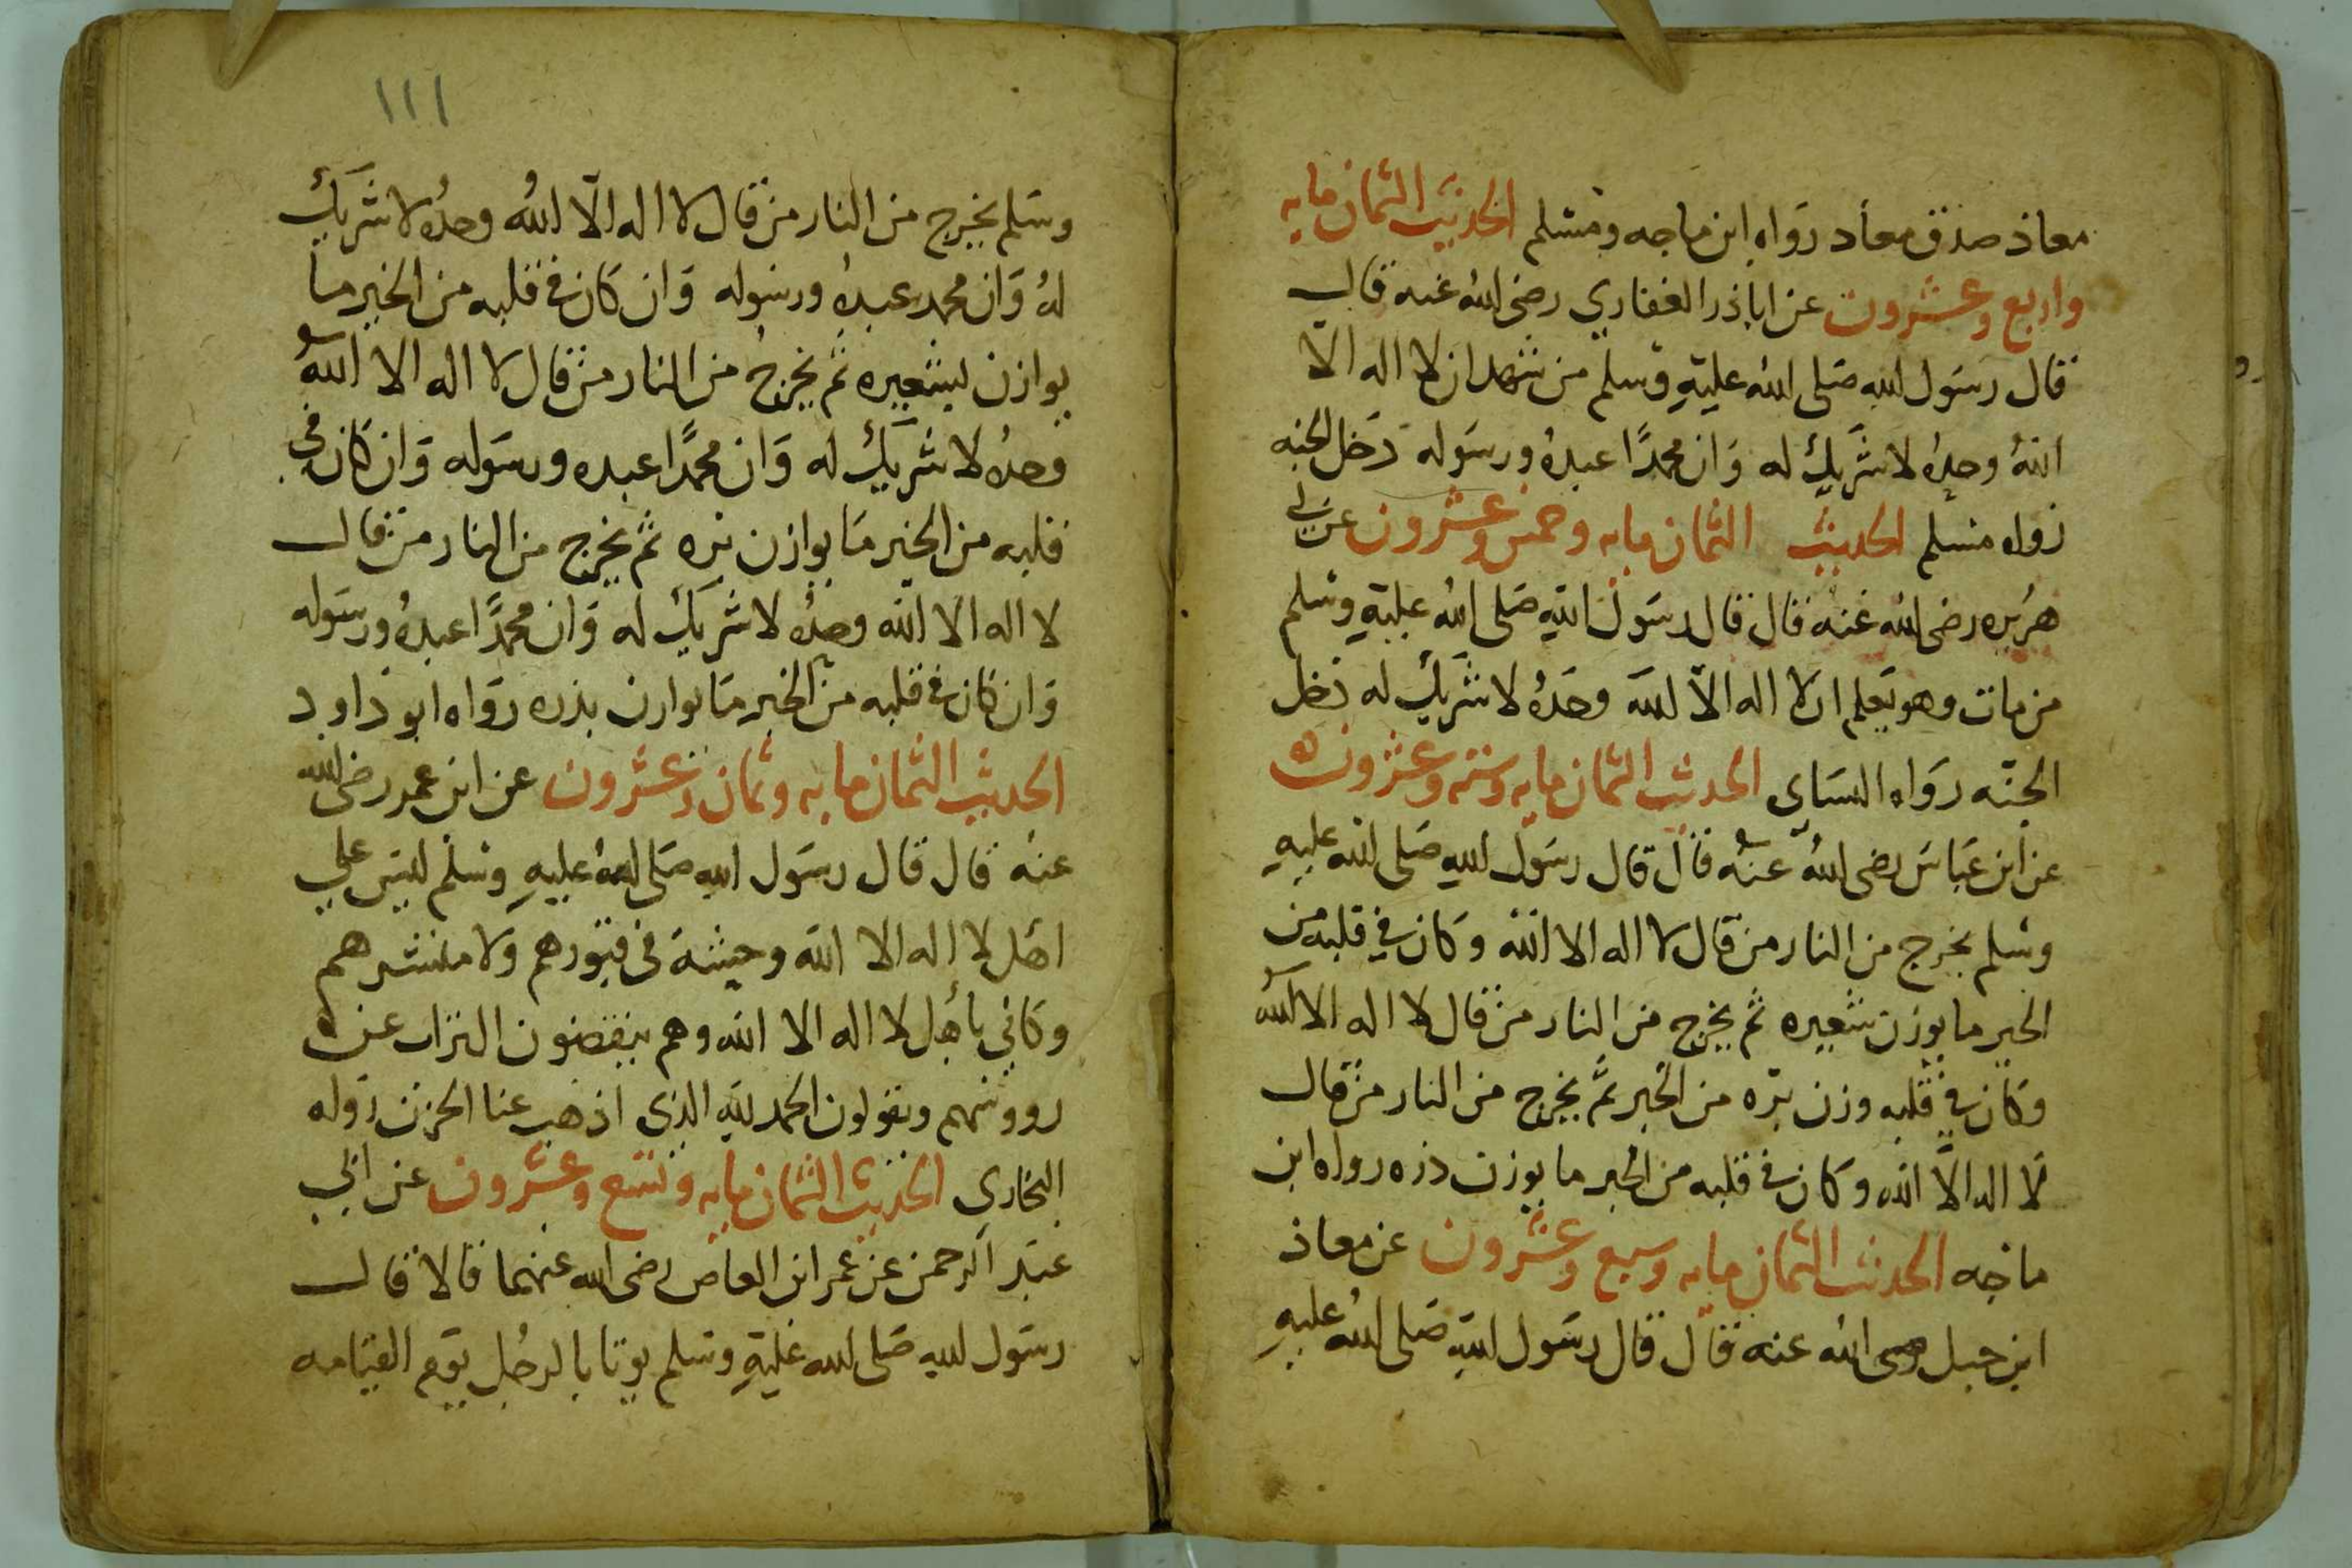 معاذ صدق معاد رواه ابن ماجه ومسلم الحديث الثمان مايه
واربع وعشرون عن ابا ذر الغفاري رضى الله عنه قال
قال رسول الله صلى الله عليه وسلم من شهد ان لا اله الا
الله وحده لا شريك له وان محمدًا عبده ورسوله دخل الجنه
رواه مسلم الحديث الثمان مايه وخمس وعشرون عن ابي
هريره رضى الله عنه قال قال رسول الله صلى الله عليه وسلم
من مات وهو يعلم ان لا اله الا الله وحده لا شريك له دخل
الجنه رواه النساى الحديث الثمان مايه وسته وعشرون
عن ابن عباس رضى الله عنه قال قال رسول الله صلى الله عليه
وسلم يخرج من النار من قال لا اله الا الله وكان في قلبه من
الخير ما يوزن شعيره ثم يخرج من النار من قال لا اله الا الله
وكان في قلبه وزن بره من الخير ثم يخرج من النار من قال
لا اله الا الله وكان في قلبه من الخير ما يوزن ذره رواه ابن
ماجه الحديث الثمان مايه وسبع وعشرون عن معاذ
ابن جبل رضى الله عنه قال قال رسول الله صلى الله عليه
١١١
وسلم يخرج من النار من قال لا اله الا الله وحده لا شريك
له وان محمد عبده ورسوله وان كان في قلبه من الخير ما
يوازن لشعيره ثم يخرج من النار من قال لا اله الا الله
وحده لا شريك له وان محمدًا عبده ورسوله وان كان في
قلبه من الخير ما يوازن بره ثم يخرج من النار من قال
لا اله الا الله وحده لا شريك له وان محمدًا عبده ورسوله
وان كان في قلبه من الخير ما يوازن بذره رواه ابو داود
الحديث الثمان مايه وثمان وعشرون عن ابن عمر رضى الله
عنه قال قال رسول الله صلى الله عليه وسلم ليس على
اهل لا اله الا الله وحيشة في قبورهم ولا منشرهم
وكاني باهل لا اله الا الله وهم ينفضون التراب عن
رووسهم ويقولون الحمد لله الذي اذهب عنا الحزن رواه
البخاري الحديث الثمان مايه وتسع وعشرون عن ابي
عبد الرحمن عن عمر ابن العاص رضى الله عنهما قالا قال
رسول الله صلى الله عليه وسلم يوتا بالرجل يوم القيامه